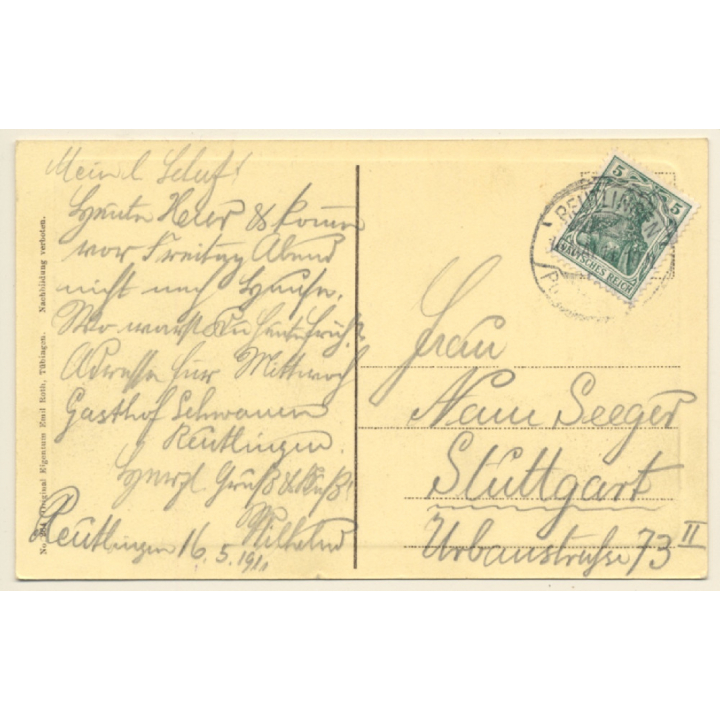 Mein l. Schatz!
Heute Hier & komme
vor Freitag Abend
nicht nach Hause.
Wo warst Du heute früh?
Adresse für Mittwoch
Gasthof Schwanen
Reutlingen.
Herzl. Gruß & Kuß!
Wilhelm
Reutlingen 16.5.1911
No. Original Eigentum Emil Roth, Tübingen. Nachbildung verboten.
REUTLINGEN
5 5
DEUTSCHES REICH
Frau
Seeger
Stuttgart
Urbanstraße 73 II